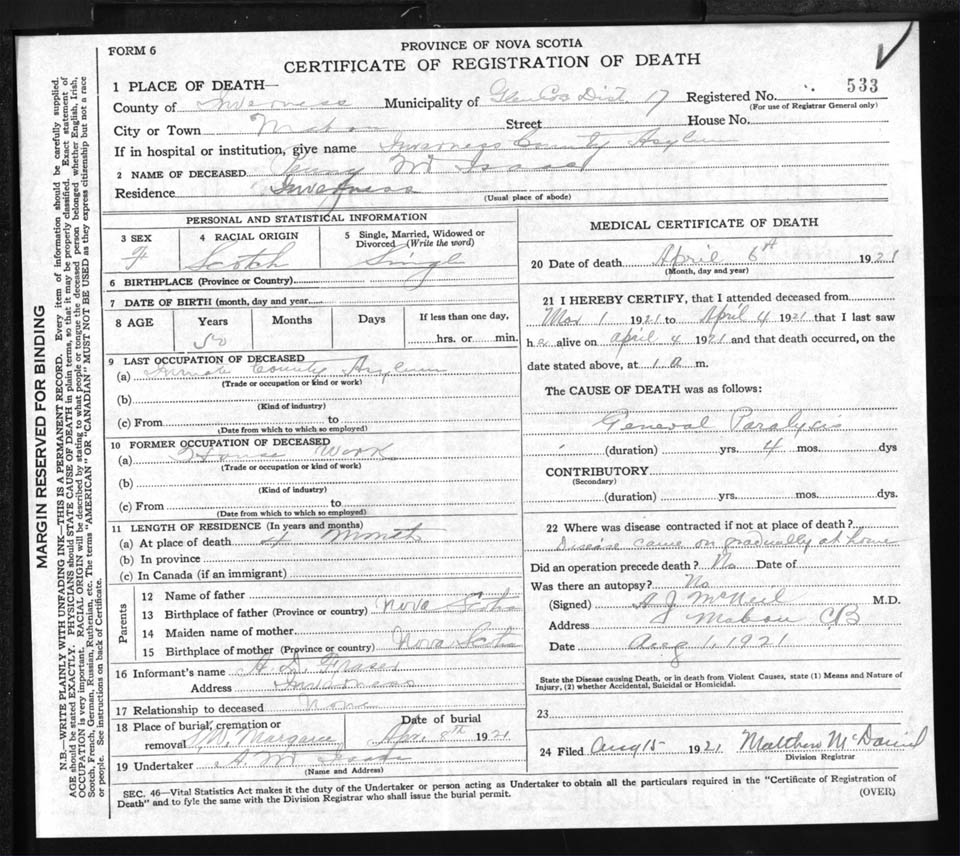 FORM 6
PROVINCE OF NOVA SCOTIA
CERTIFICATE OF REGISTRATION OF DEATH
1 PLACE OF DEATH—
Registered No. 533
(For use of Registrar General only)
County of Inverness Municipality of Glencoe Dist 17
City or Town Mabou Street House No.
If in hospital or institution, give name Inverness County Asylum
2 NAME OF DECEASED Mc Isaac
Residence Inverness
(Usual place of abode)
PERSONAL AND STATISTICAL INFORMATION
3 SEX F
4 RACIAL ORIGIN Scotch
5 Single, Married, Widowed or Divorced (Write the word) Single
6 BIRTHPLACE (Province or Country)
7 DATE OF BIRTH (month, day and year)
8 AGE Years Months Days If less than one day,
50 hrs. or min.
9 LAST OCCUPATION OF DECEASED
(a) Inmate County Asylum
(Trade or occupation or kind or work)
(b)
(Kind of industry)
(c) From to
(Date from which to which so employed)
10 FORMER OCCUPATION OF DECEASED
(a) House Work
(Trade or occupation or kind of work)
(b)
(Kind of industry)
(c) From to
(Date from which to which so employed)
11 LENGTH OF RESIDENCE (In years and months)
(a) At place of death 4 Month
(b) In province
(c) In Canada (if an immigrant)
Parents
12 Name of father
13 Birthplace of father (Province or country) Nova Scotia
14 Maiden name of mother
15 Birthplace of mother (Province or country) Nova Scotia
16 Informant's name Fraser
Address Inverness
17 Relationship to deceased None
18 Place of burial, cremation or Date of burial
removal Margaree Apr. 8th 1921
19 Undertaker
(Name and Address)
MEDICAL CERTIFICATE OF DEATH
20 Date of death April 6th 1921
(Month, day and year)
21 I HEREBY CERTIFY, that I attended deceased from
Mar 1 1921 to April 4 1921 that I last saw
h er alive on april 4 1921 and that death occurred, on the
date stated above, at 1 a m.
The CAUSE OF DEATH was as follows:
General Paralysis
(duration) yrs. 4 mos. dys
CONTRIBUTORY
(Secondary)
(duration) yrs. mos. dys.
22 Where was disease contracted if not at place of death?
Disease came on gradually at home
Did an operation precede death? No Date of
Was there an autopsy? No
(Signed) A J McNeil M.D.
Address Mabou CB
Date Aug 1, 1921
State the Disease causing Death, or in death from Violent Causes, state (1) Means and Nature of
Injury, (2) whether Accidental, Suicidal or Homicidal.
23
24 Filed Aug 15 1921 Matthew McDaniel
Division Registrar
SEC. 46—Vital Statistics Act makes it the duty of the Undertaker or person acting as Undertaker to obtain all the particulars required in the "Certificate of Registration of
Death" and to fyle the same with the Division Registrar who shall issue the burial permit.
(OVER)
MARGIN RESERVED FOR BINDING
N.B.—WRITE PLAINLY WITH UNFADING INK—THIS IS A PERMANENT RECORD. Every item of information should be carefully supplied.
AGE should be stated EXACTLY. PHYSICIANS should STATE CAUSE OF DEATH in plain terms, so that it may be properly classified. Exact statement of
OCCUPATION is very important. RACIAL ORIGIN will be described by stating to what people or tongue the deceased person belonged whether English, Irish,
Scotch, French, German, Russian, Ruthenian, etc. The terms "AMERICAN" or "CANADIAN" MUST NOT BE USED as they express citizenship but not a race
or people. See instructions on back of Certificate.